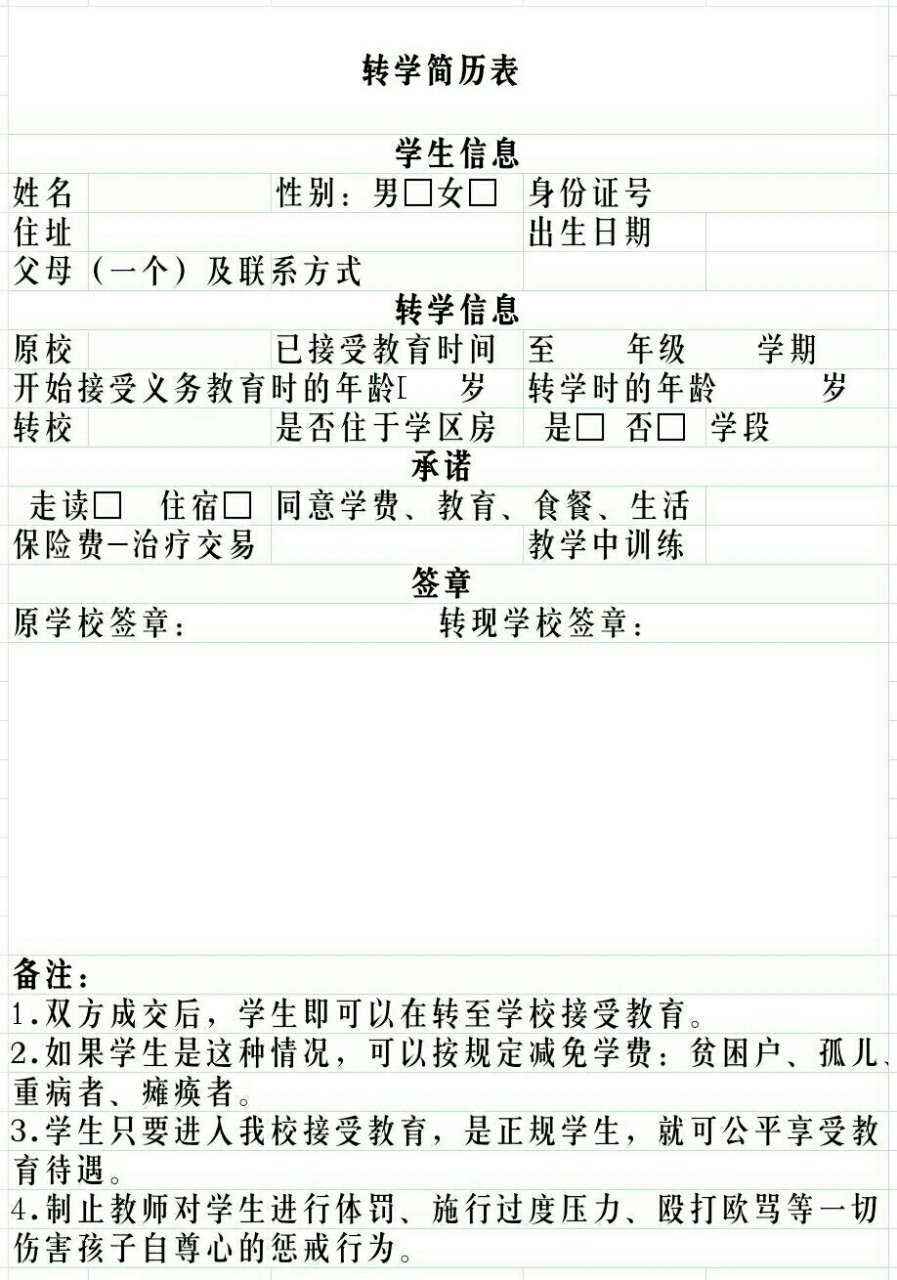 转学简历表
学生信息
姓名 性别：男□女□ 身份证号
住址 出生日期
父母（一个）及联系方式
转学信息
原校 已接受教育时间 至 年级 学期
开始接受义务教育时的年龄[ 岁 转学时的年龄 岁
转校 是否住于学区房 是□ 否□ 学段
承诺
走读□ 住宿□ 同意学费、教育、食餐、生活
保险费—治疗交易 教学中训练
签章
原学校签章： 转现学校签章：
备注：
1.双方成交后，学生即可以在转至学校接受教育。
2.如果学生是这种情况，可以按规定减免学费：贫困户、孤儿、
重病者、瘫痪者。
3.学生只要进入我校接受教育，是正规学生，就可公平享受教
育待遇。
4.制止教师对学生进行体罚、施行过度压力、殴打欧骂等一切
伤害孩子自尊心的惩戒行为。